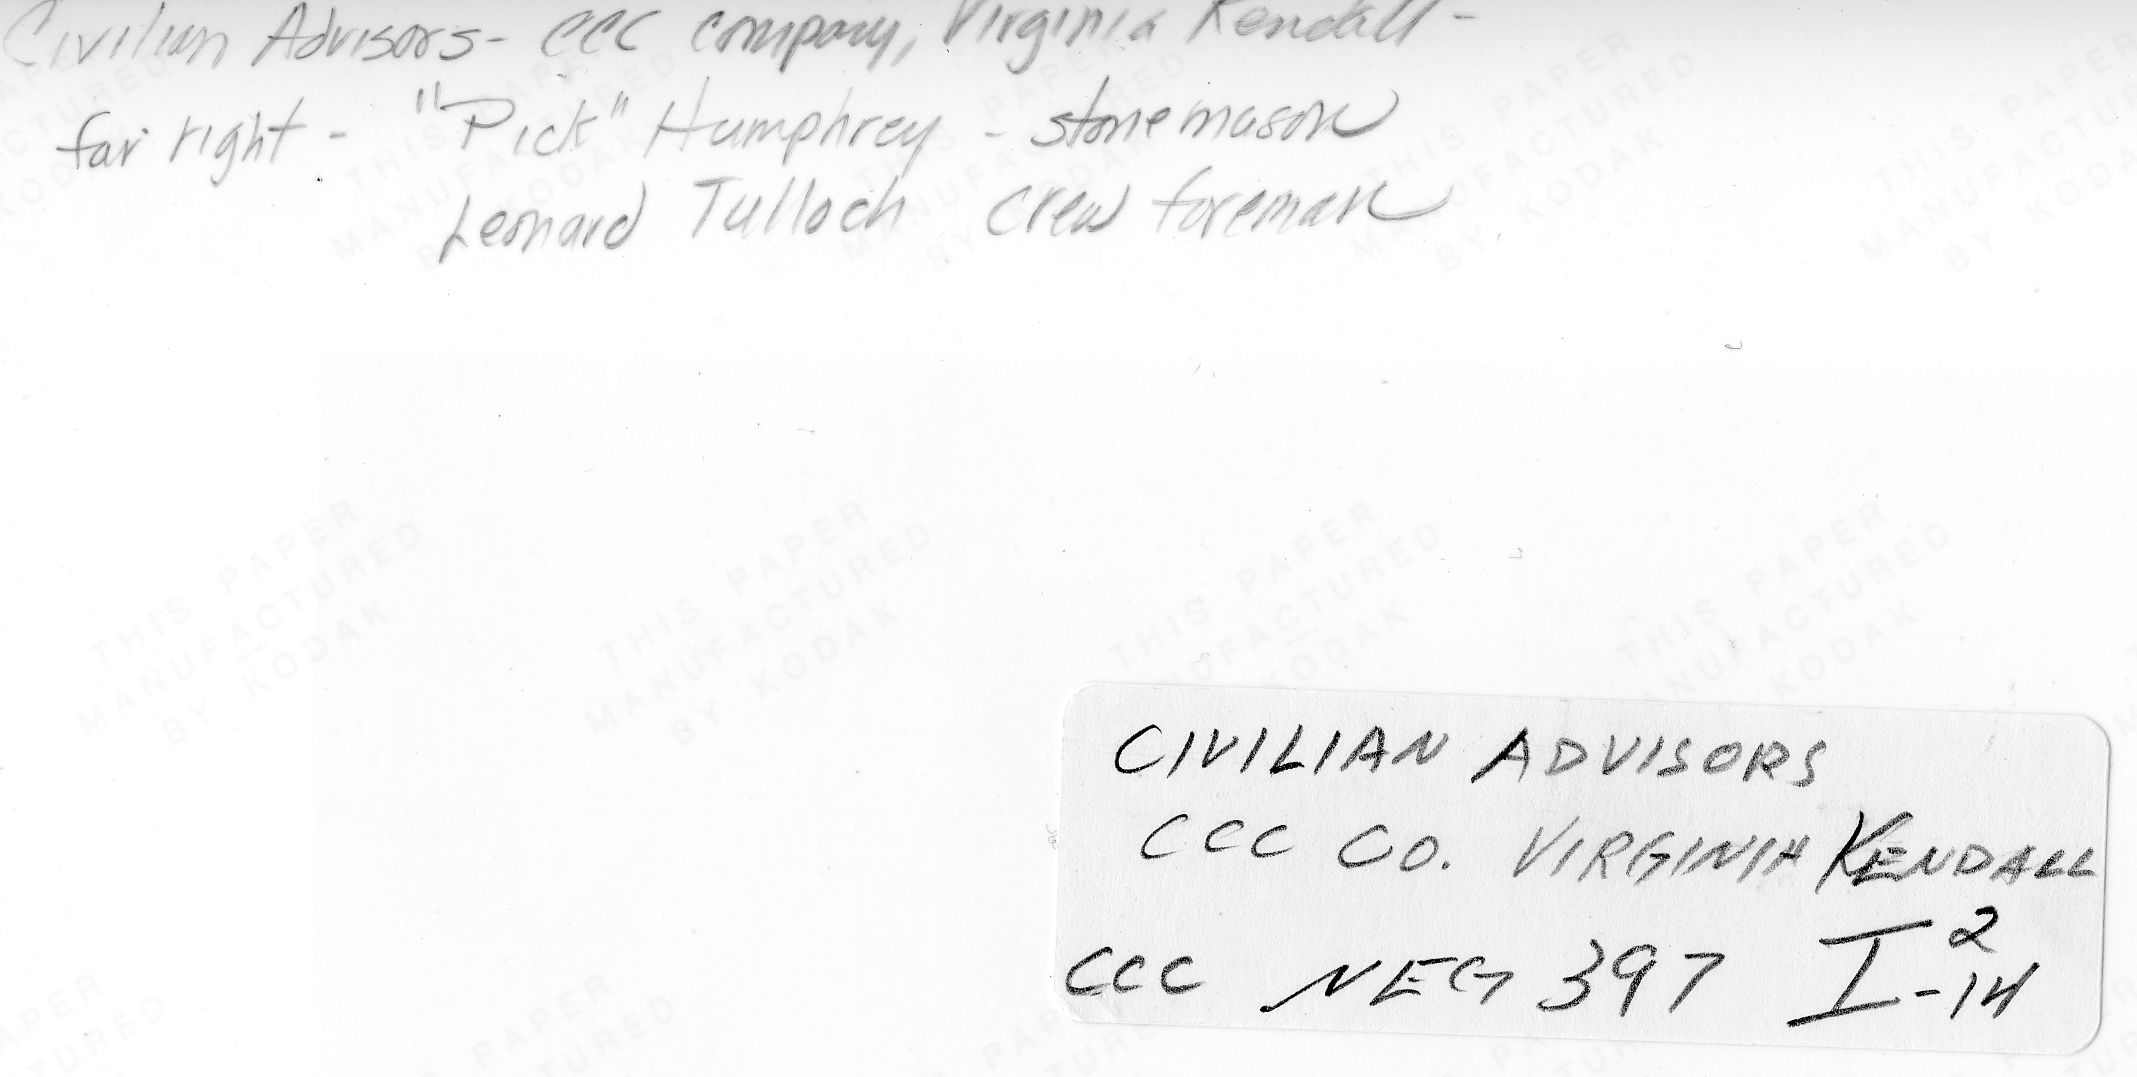 Civilian Advisors - CCC company, Virginia Kendall -
far right - "Pick" Humphrey - stonemason
Leonard Tulloch crew foreman
THIS PAPER
MANUFACTURED
BY KODAK
CIVILIAN ADVISORS
CCC CO. VIRGINIA KENDALL
CCC NEG 397 I-2-14